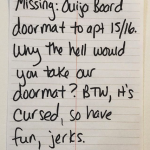 Missing: Ouija Board
doormat to apt 15/16.
Why the hell would
you take our
doormat? BTW, it's
cursed, so have
fun, jerks.